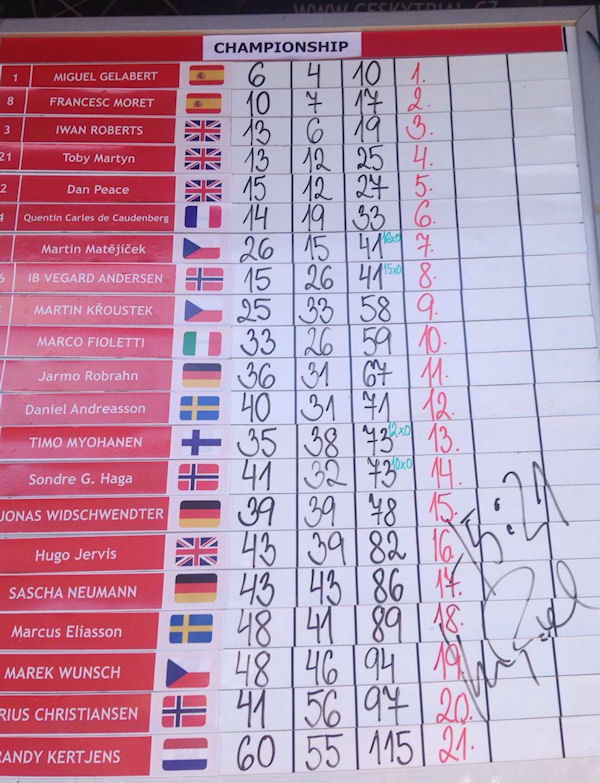 WWW.CESKYTRIAL.CZ
CHAMPIONSHIP
1 MIGUEL GELABERT 6 4 10 1.
8 FRANCESC MORET 10 7 17 2.
3 IWAN ROBERTS 13 6 19 3.
21 Toby Martyn 13 12 25 4.
2 Dan Peace 15 12 27 5.
4 Quentin Carles de Caudenberg 14 19 33 6.
Martin Matějíček 26 15 41 16x0 7.
6 IB VEGARD ANDERSEN 15 26 41 15x0 8.
MARTIN KŘOUSTEK 25 33 58 9.
MARCO FIOLETTI 33 26 59 10.
Jarmo Robrahn 36 31 67 11.
Daniel Andreasson 40 31 71 12.
TIMO MYOHANEN 35 38 73 12x0 13.
Sondre G. Haga 41 32 73 10x0 14.
JONAS WIDSCHWENDTER 39 39 78 15.
Hugo Jervis 43 39 82 16.
SASCHA NEUMANN 43 43 86 17.
Marcus Eliasson 48 41 89 18.
MAREK WUNSCH 48 46 94 19.
RIUS CHRISTIANSEN 41 56 97 20.
RANDY KERTJENS 60 55 115 21.
15:21